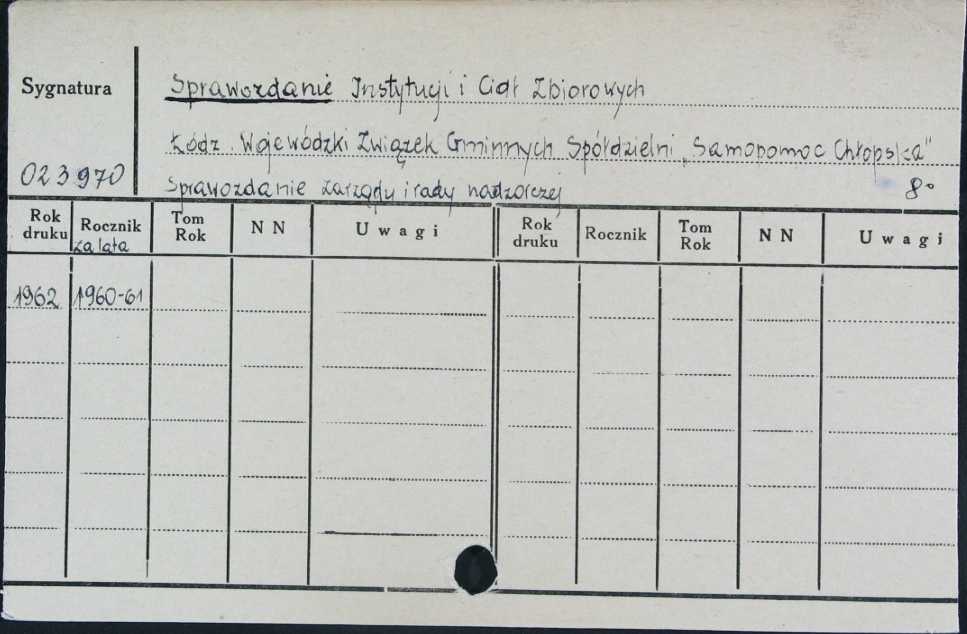 Sygnatura
Sprawozdanie Instytucji i Ciał Zbiorowych
Łódz. Wojewódzki Związek Gminnych Spółdzielni „Samopomoc Chłopska"
023970
Sprawozdanie zarządu i rady nadzorczej 8°
Rok druku Rocznik za lata Tom Rok N N Uwagi Rok druku Rocznik Tom Rok N N Uwagi
1962 1960-61